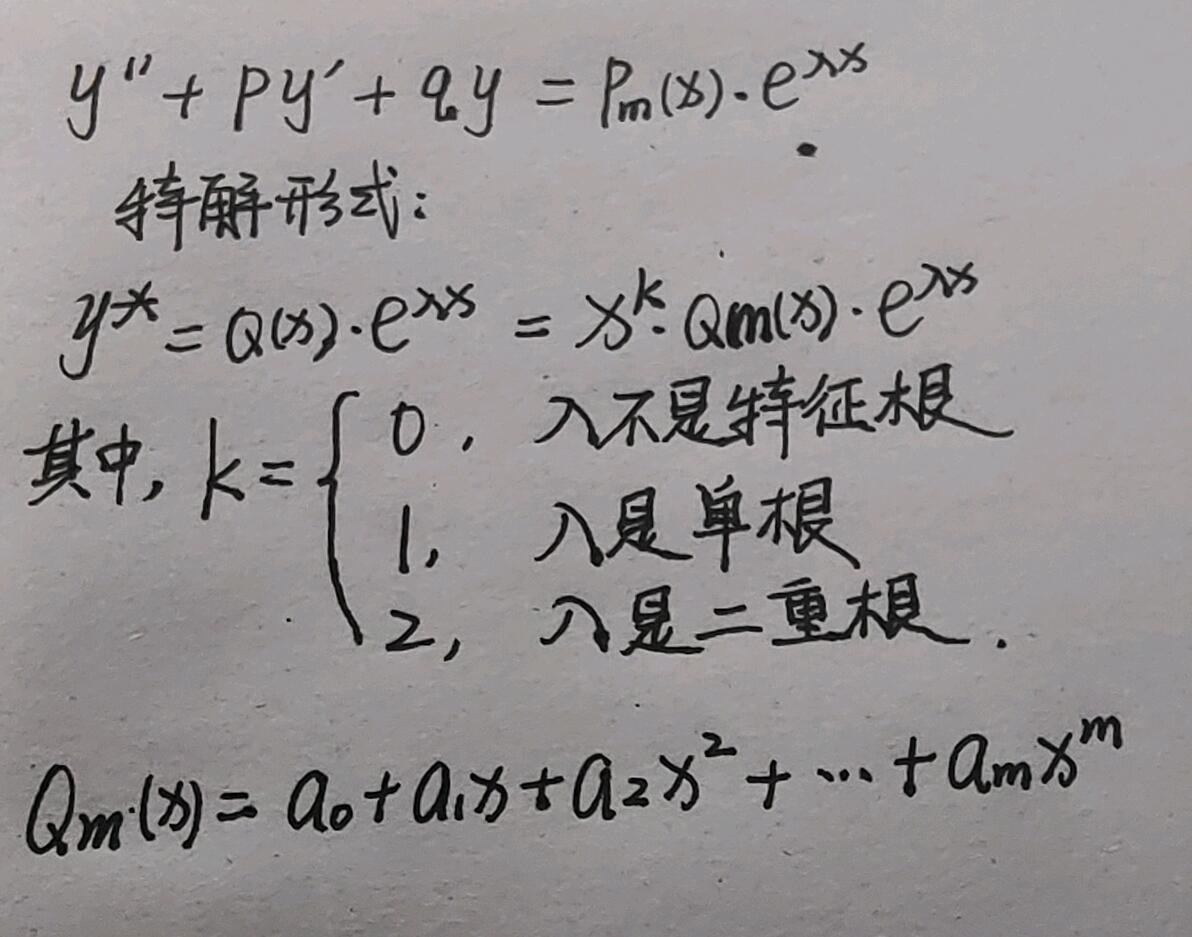 y″ + py′ + qy = Pm(x)·e^λx
特解形式:
y* = Q(x)·e^λx = x^k·Qm(x)·e^λx
其中, k = { 0, λ不是特征根
1, λ是单根
2, λ是二重根.
Qm(x) = a₀ + a₁x + a₂x² + ··· + amx^m